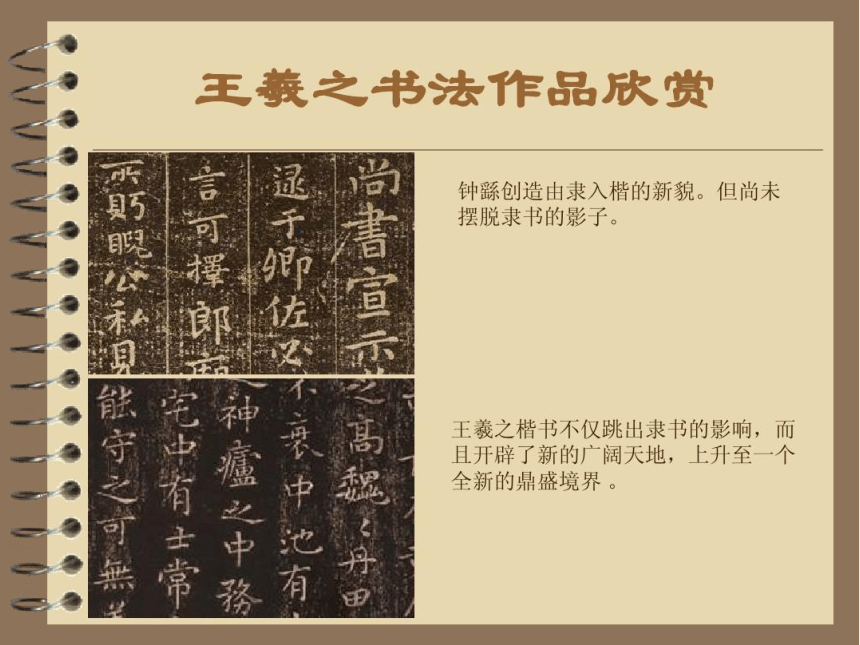 王羲之书法作品欣赏
尚書宣示
逮于卿佐必
言可擇郎廟
所眄睨公私見
钟繇创造由隶入楷的新貌。但尚未
摆脱隶书的影子。
之高魏〻丹田
不衰中池有
之神廬之中務
宅中有士常
能守之可無
王羲之楷书不仅跳出隶书的影响，而
且开辟了新的广阔天地，上升至一个
全新的鼎盛境界 。